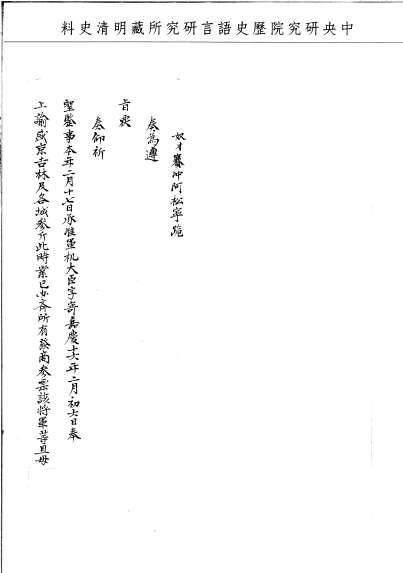 中央研究院歷史語言研究所藏明清史料
奴才賽沖阿松寧跪
奏為遵
旨覆
奏仰祈
聖鑒事本年二月十七日承准軍机大臣字寄嘉慶十六年二月初六日奉
上諭盛京吉林及各城參斤此時業已办齊所有發商參票該將軍等且毋